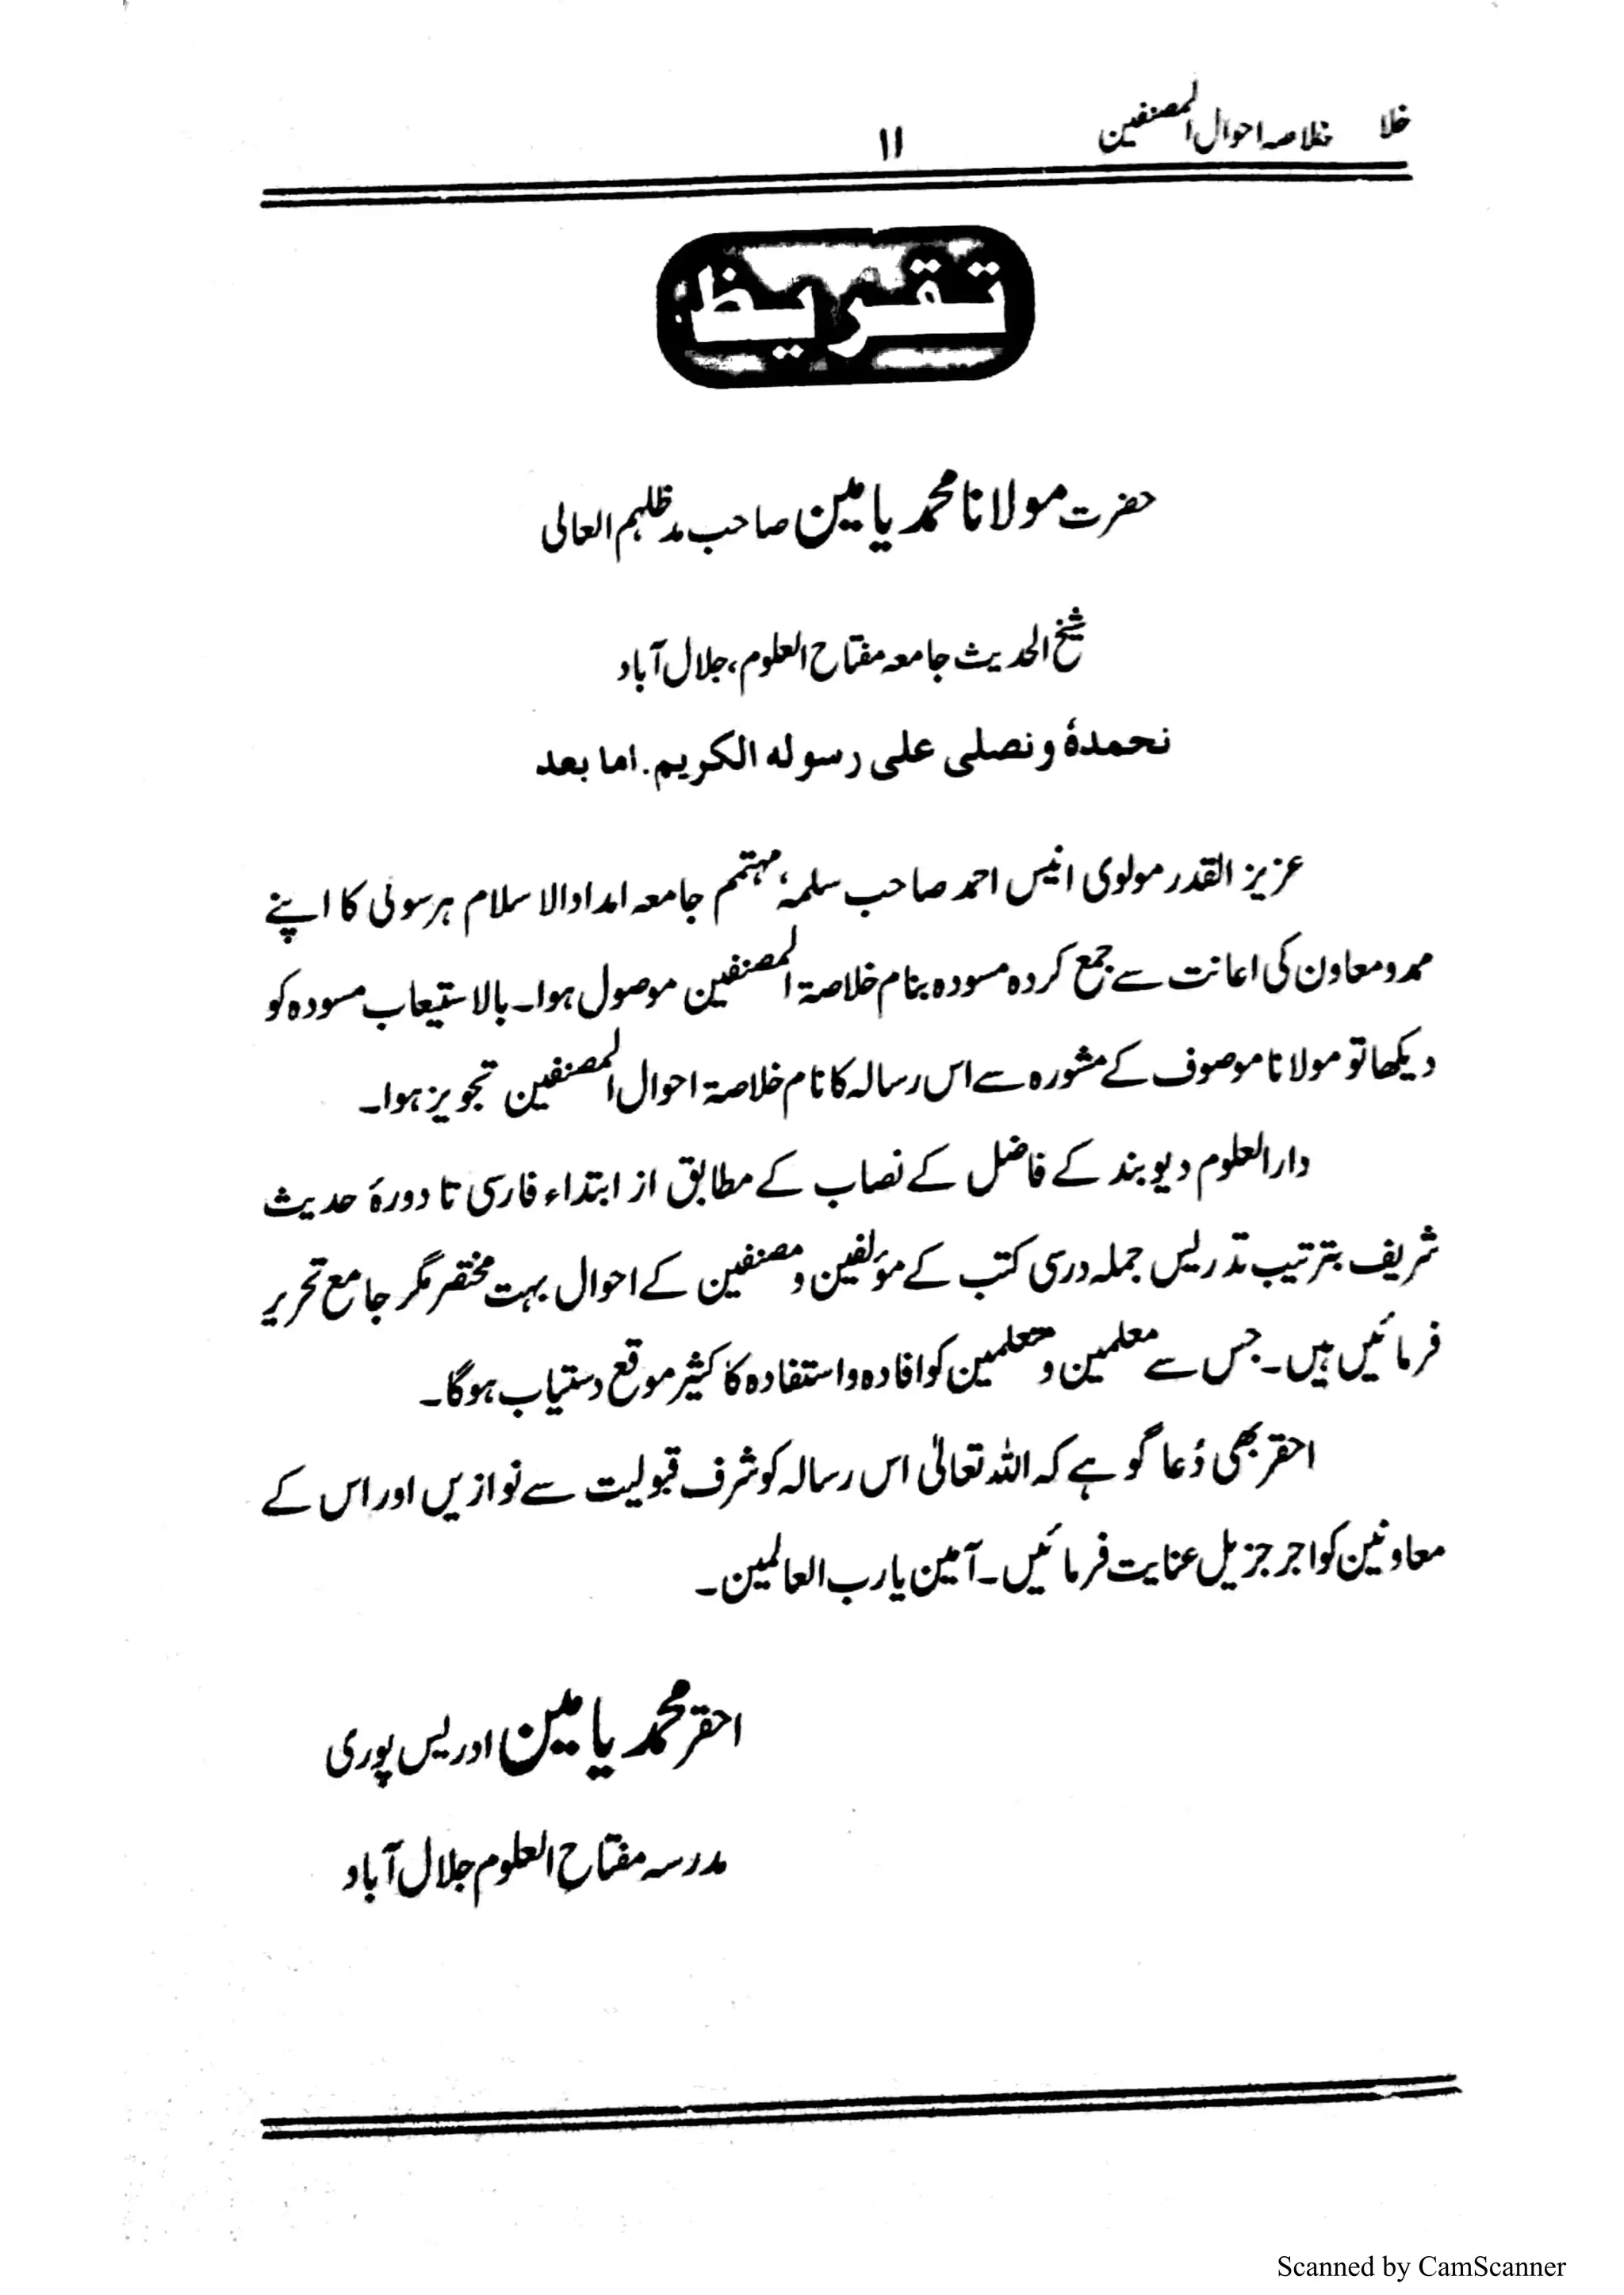 خلا خلاصہ احوال المصنفین ۱۱
تقریظ
حضرت مولانا محمد یامین صاحب مد ظلہم العالی
شیخ الحدیث جامعہ مفتاح العلوم، جلال آباد
نحمدہٗ و نصلی علی رسوله الکریم. اما بعد
عزیز القدر مولوی انیس احمد صاحب سلمہٗ، مہتمم جامعہ امداد الاسلام ہرسولی کا اپنے
ممد ومعاون کی اعانت سے جمع کردہ مسودہ بنام خلاصۃ المصنفین موصول ہوا۔ بالاستیعاب مسودہ کو
دیکھا تو مولانا موصوف کے مشورہ سے اس رسالہ کا نام خلاصۃ احوال المصنفین تجویز ہوا۔
دارالعلوم دیوبند کے فاضل کے نصاب کے مطابق از ابتداء فارسی تا دورۂ حدیث
شریف بترتیب تدریس جملہ درسی کتب کے مؤلفین و مصنفین کے احوال بہت مختصر مگر جامع تحریر
فرمائیں ہیں۔ جس سے معلمین و متعلمین کو افادہ و استفادہ کا کثیر موقع دستیاب ہوگا۔
احقر بھی دُعا گو ہے کہ اللہ تعالیٰ اس رسالہ کو شرف قبولیت سے نوازیں اور اس کے
معاونین کو اجر جزیل عنایت فرمائیں۔ آمین یا رب العالمین۔
احقر محمد یامین ادریس پوری
مدرسہ مفتاح العلوم جلال آباد
Scanned by CamScanner